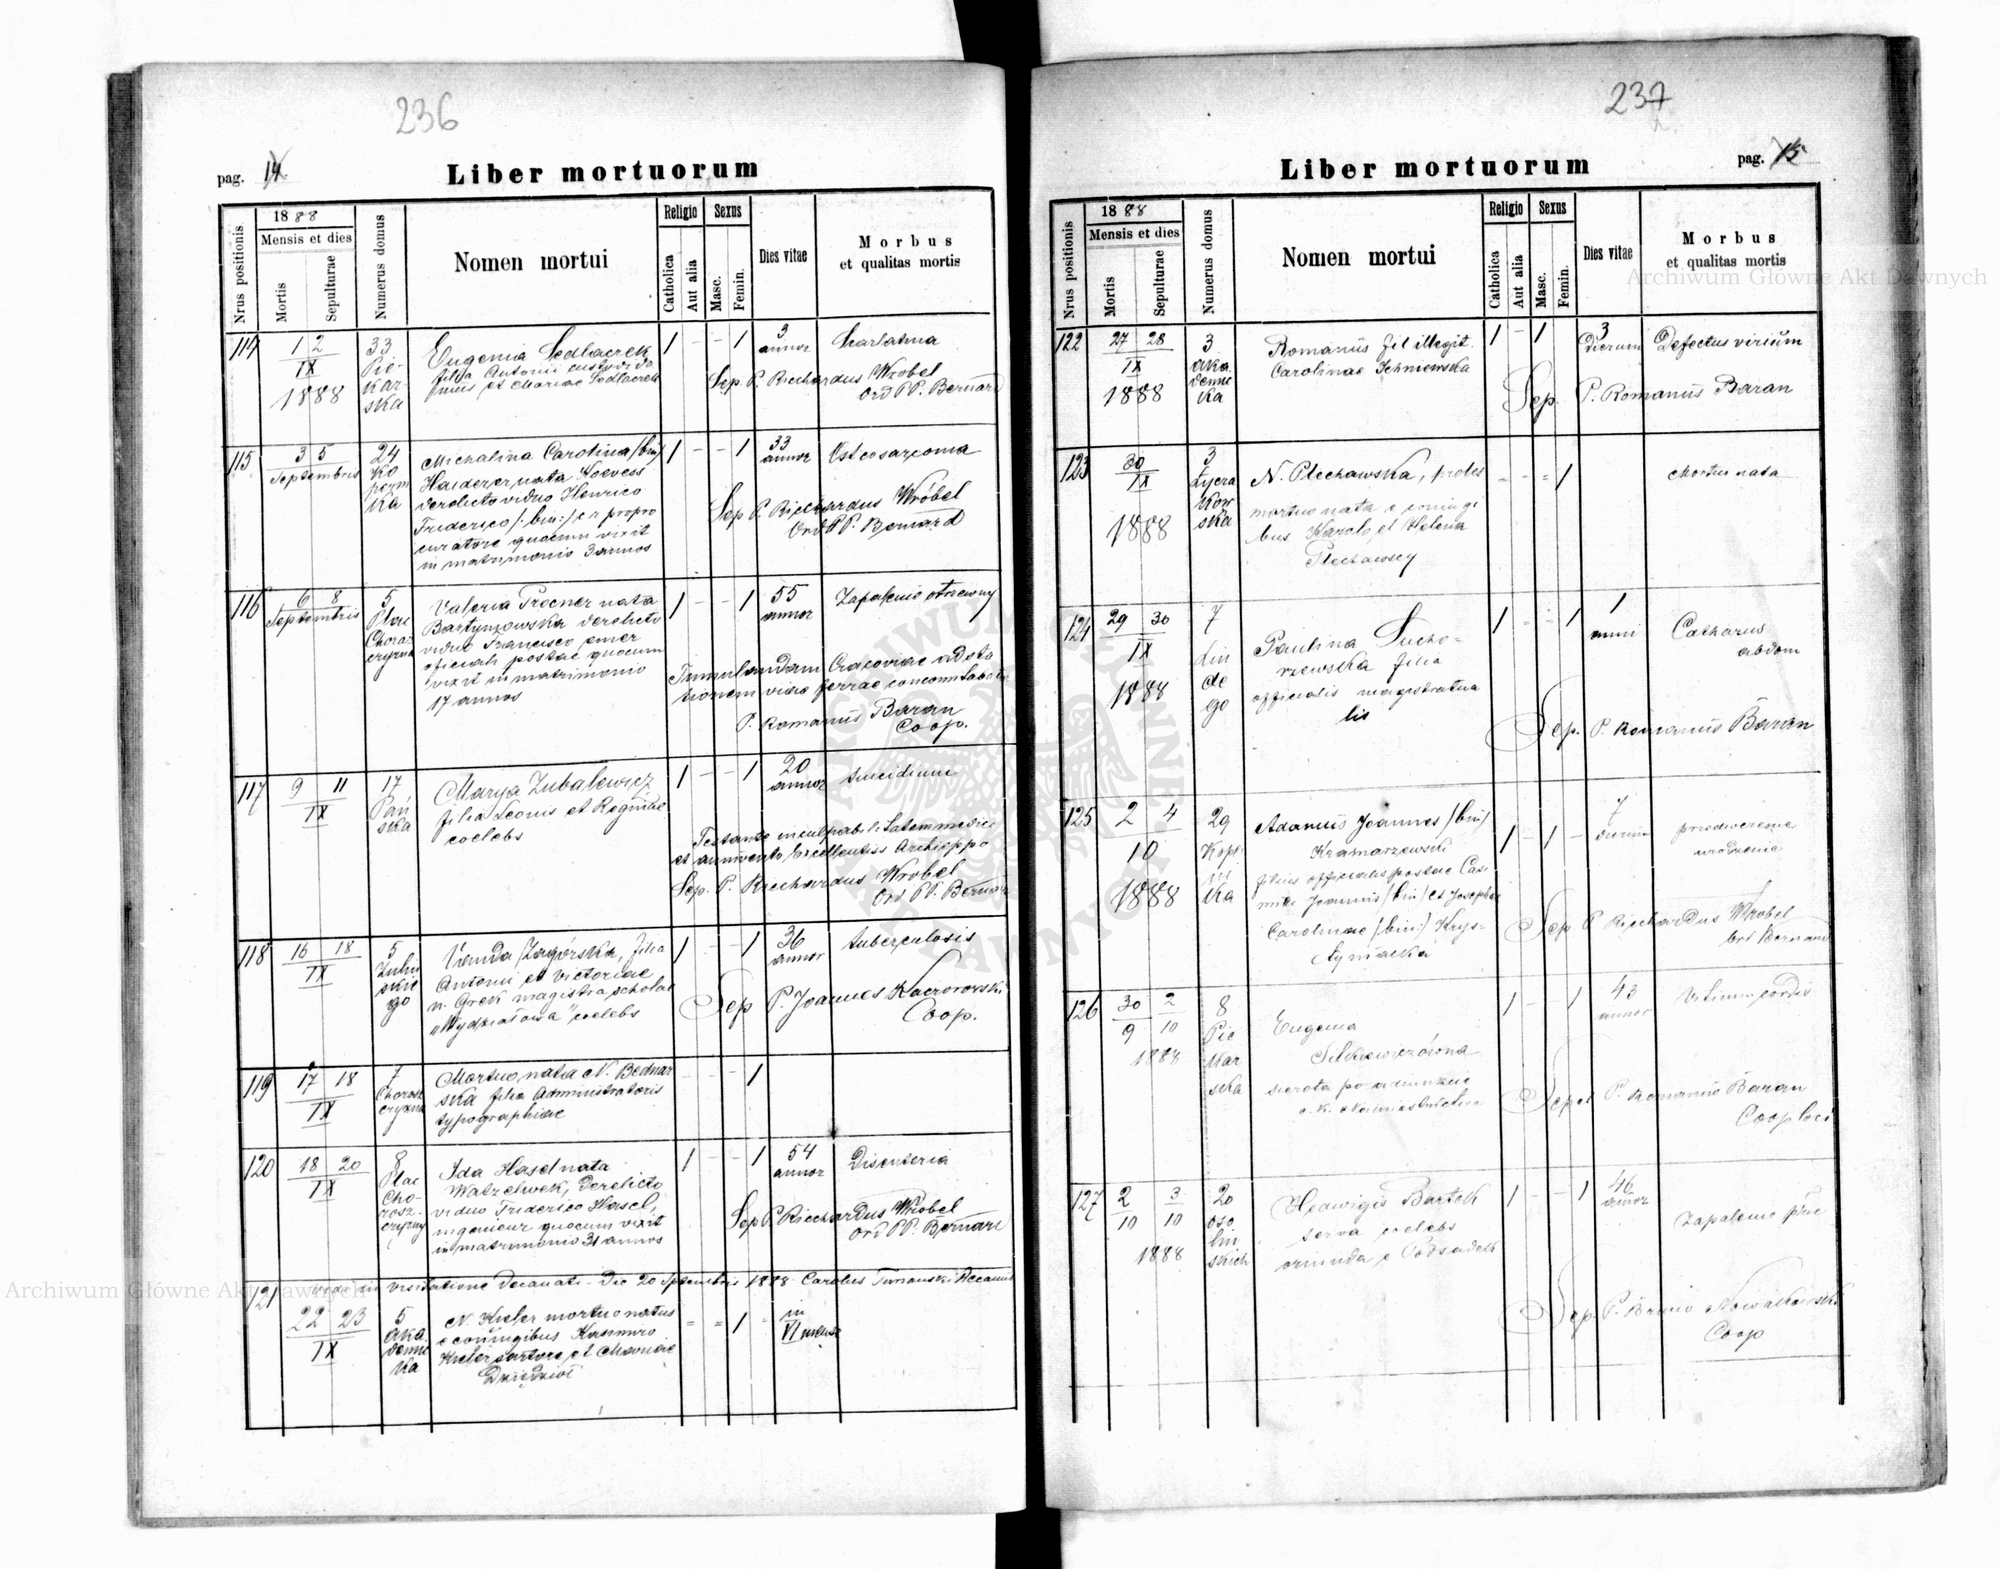 236
pag. 14
Liber mortuorum
Nrus positionis
1888
Mensis et dies
Mortis
Sepulturae
Numerus domus
Nomen mortui
Religio
Catholica
Aut alia
Sexus
Masc.
Femin.
Dies vitae
Morbus
et qualitas mortis
114
1 2
IX
1888
33
Pie-
kar-
ska
Eugenia Sedlaczek
filia Antonii
et Mariae Sedlaczek
1 - - 1
3
annor
Scarlatina
Sep. P. Riechardus Wrobel
Ord PP. Bernard
115
3 5
Septembris
24
Ko
pern
ka
Michalina Carolina /bin/
nata
derelicto viduo Henrico
Friderico /:bin:/
curatore quocum vixit
in matrimonio 3 annos
1 - - 1
33
annor
Osteosarcoma
Sep P. Riechardus Wróbel
Ord PP. Bernard
116
6 8
Septembris
5
Plac
Chorąż
czyzna
Valeria Procner nata
Bartymowska derelicto
viduo Francisco emer
oficiali postae quocum
vixit in matrimonio
17 annos
1 - - 1
55
annor
Zapalenie otrzewny
Tumulandam Cracoviae ad sta
tionem viae ferrae concomitabatur
P. Romanus Baran
Coop.
117
9 11
IX
17
Pań
ska
Marya Zubalewicz
filia Leonis et Reginae
coelebs
1 - - 1
20
annor
Suicidium
Testante inculpabilitatem medico
et annuente Excellentiss Archieppo
Sep. P. Riechardus Wrobel
Ord PP. Bernard
118
16 18
IX
5
Zuliń
skie
go
Vanda Zagórska, filia
Antonii et Victoriae
n. Grek magistra scholae
"Wydziałowa" coelebs
1 - - 1
36
annor
tuberculosis
Sep P. Joannes Kaczorowski
Coop.
119
17 18
IX
7
Chorąż
czyzna
Mortuo nata N. Bednar
ska filia Administratoris
typographiae
- - - 1
120
18 20
IX
8
Plac
Cho-
rąsz-
czyzny
Ida Hasel nata
Watzelwek, derelicto
viduo Friderico Hasel,
ingenieur quocum vixit
in matrimonio 31 annos
1 - - 1
54
annor
Disenteria
Sep P. Riechardus Wróbel
Ord PP. Bernard
Vidi in visitatione Decanati - Die 20 Septembris 1888 - Carolus Decanus
121
22 23
IX
5
Aka
demi
ka
N. Kieler mortuo natus
e coniugibus Kasimiro
Kieler sartore et Mariae
- - 1 -
in
VI mense
237
pag. 15
Liber mortuorum
Nrus positionis
1888
Mensis et dies
Mortis
Sepulturae
Numerus domus
Nomen mortui
Religio
Catholica
Aut alia
Sexus
Masc.
Femin.
Dies vitae
Morbus
et qualitas mortis
Archiwum Główne Akt Dawnych
122
27 28
IX
1888
3
Aka
demic
ka
Romanus fil illegit.
Carolinae Ichniowska
1 - 1
3
Dierum
Defectus virium
Sep. P. Romanus Baran
123
30
IX
1888
3
Łycza
kow
ska
N. Plechawska, proles
mortuo nata e coniugi
bus Karolo et Helena
Plechawscy
- - - 1
Mortuo nata
124
29 30
IX
1888
7
Lin
de
go
Paulina Sucho-
rzewska filia
officialis magistratua
lis
1 - - 1
1
anni
Catharus
abdom
Sep. P. Romanus Baran
125
2 4
10
1888
29
Koper
ni
ka
Adamus Joannes /bin/
Kramarzewski
filius officialis postae Casi
miri Joannis /bin/ et Josephae
Carolinae /bin:/ Krys-
1 - 1 -
7
dierum
przedwczesne
urodzenie
Sep P Riechardus Wrobel
Ord Bernard
126
30 2
9 10
1888
8
Pie
kar
ska
Eugenia
sierota po adiunkcie
c. k.
1 - - 1
43
annor
Vitium cordis
Sepel P. Romanus Baran
Coop loci
127
2 3
10 10
1888
20
Oso
lin
skich
Hedwigis Bartek
serva coelebs
oriunda e Podsadek
1 - - 1
46
annor
Zapalenie płuc
Sep. P. Bruno Nowakowski
Coop
Archiwum Główne Akt Dawnych